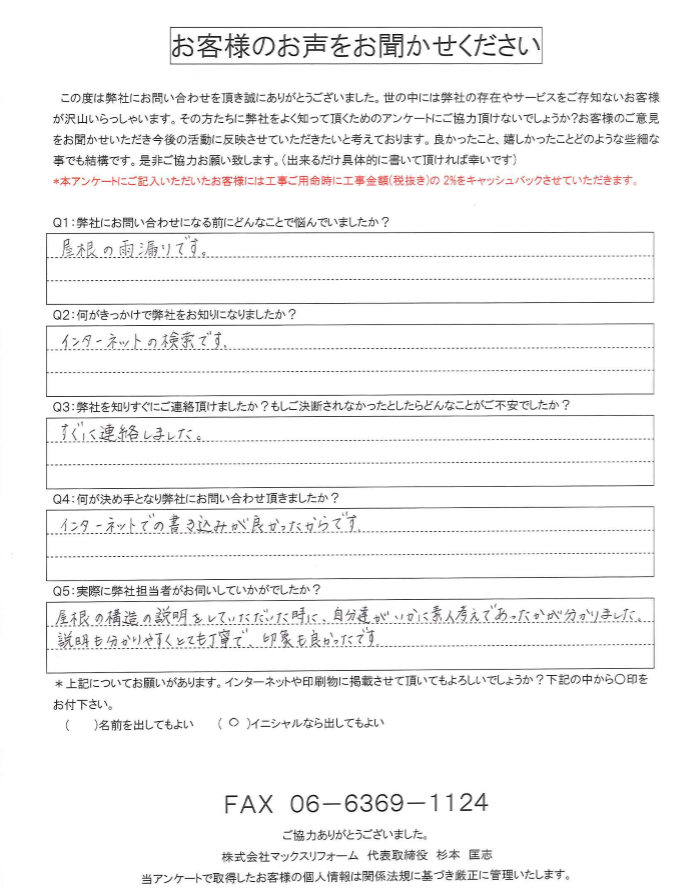 お客様のお声をお聞かせください
この度は弊社にお問い合わせを頂き誠にありがとうございました。世の中には弊社の存在やサービスをご存知ないお客様
が沢山いらっしゃいます。その方たちに弊社をよく知って頂くためのアンケートにご協力頂けないでしょうか?お客様のご意見
をお聞かせいただき今後の活動に反映させていただきたいと考えております。良かったこと、嬉しかったことどのような些細な
事でも結構です。是非ご協力お願い致します。(出来るだけ具体的に書いて頂ければ幸いです)
*本アンケートにご記入いただいたお客様には工事ご用命時に工事金額(税抜き)の 2%をキャッシュバックさせていただきます。
Q1:弊社にお問い合わせになる前にどんなことで悩んでいましたか?
屋根の雨漏りです。
Q2:何がきっかけで弊社をお知りになりましたか?
インターネットの検索です。
Q3:弊社を知りすぐにご連絡頂けましたか?もしご決断されなかったとしたらどんなことがご不安でしたか?
すぐに連絡しました。
Q4:何が決め手となり弊社にお問い合わせ頂きましたか?
インターネットでの書き込みが良かったからです。
Q5:実際に弊社担当者がお伺いしていかがでしたか?
屋根の構造の説明をしていただいた時に、自分達がいかに素人考えであったかが分かりました。
説明も分かりやすくとても丁寧で、印象も良かったです。
*上記についてお願いがあります。インターネットや印刷物に掲載させて頂いてもよろしいでしょうか?下記の中から○印を
お付下さい。
( )名前を出してもよい (○)イニシャルなら出してもよい
FAX 06-6369-1124
ご協力ありがとうございました。
株式会社マックスリフォーム 代表取締役 杉本 匡志
当アンケートで取得したお客様の個人情報は関係法規に基づき厳正に管理いたします。